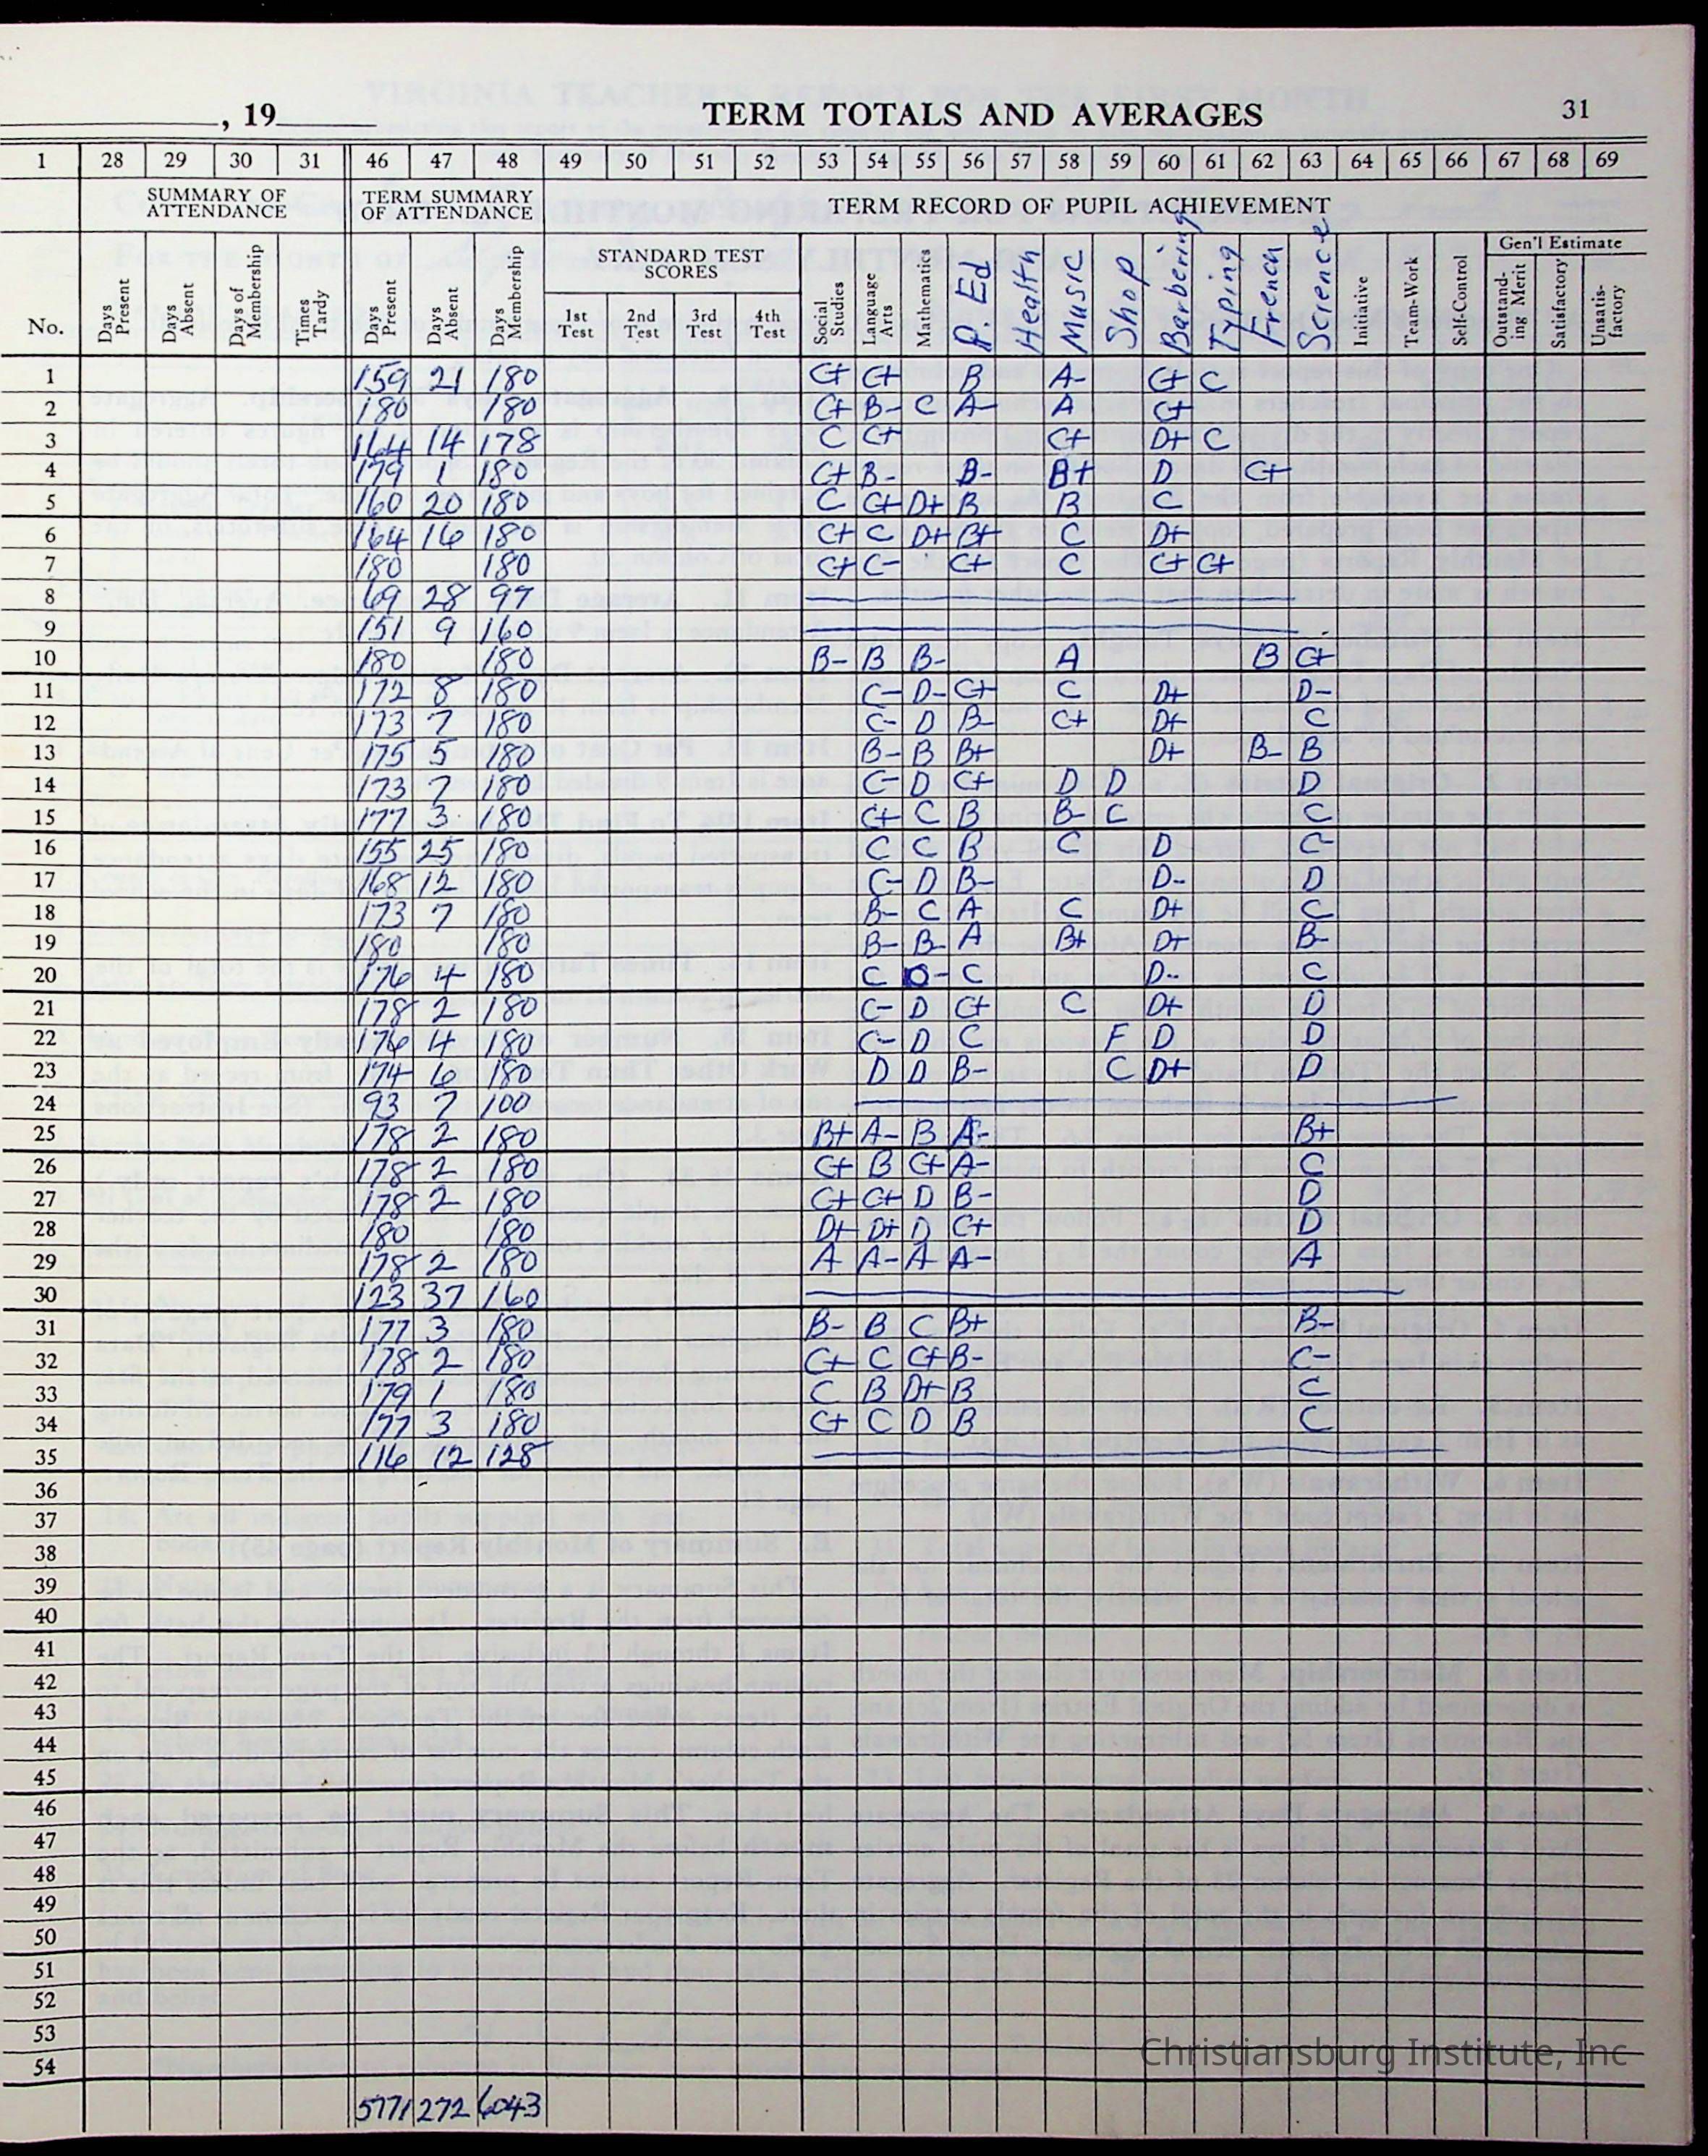 , 19 TERM TOTALS AND AVERAGES 31
1 28 29 30 31 46 47 48 49 50 51 52 53 54 55 56 57 58 59 60 61 62 63 64 65 66 67 68 69
SUMMARY OF ATTENDANCE TERM SUMMARY OF ATTENDANCE TERM RECORD OF PUPIL ACHIEVEMENT
STANDARD TEST SCORES Gen'l Estimate
No. Days Present Days Absent Days of Membership Times Tardy Days Present Days Absent Days Membership 1st Test 2nd Test 3rd Test 4th Test Social Studies Language Arts Mathematics P. Ed Health Music Shop Barbering Typing French Science Initiative Team-Work Self-Control Outstanding Merit Satisfactory Unsatisfactory
1 159 21 180 C+ C+ B A- C+ C
2 180 180 C+ B- C A- A C+
3 164 14 178 C C+ C+ D+ C
4 179 1 180 C+ B- B- B+ D C+
5 160 20 180 C C+ D+ B B C
6 164 16 180 C+ C D+ B+ C D+
7 180 180 C+ C- C+ C C+ C+
8 69 28 97
9 151 9 160
10 180 180 B- B B- A B C+
11 172 8 180 C- D- C+ C D+ D-
12 173 7 180 C- D B- C+ D+ C
13 175 5 180 B- B B+ D+ B- B
14 173 7 180 C- D C+ D D D
15 177 3 180 C+ C B B- C C
16 155 25 180 C C B C D C-
17 168 12 180 C- D B- D- D
18 173 7 180 B- C A C D+ C
19 180 180 B- B- A B+ D+ B-
20 176 4 180 C D- C D- C
21 178 2 180 C- D C+ C D+ D
22 176 4 180 C- D C F D D
23 174 6 180 D D B- C D+ D
24 93 7 100
25 178 2 180 B+ A- B A- B+
26 178 2 180 C+ B C+ A- C
27 178 2 180 C+ C+ D B- D
28 180 180 D+ D+ D C+ D
29 178 2 180 A A- A A- A
30 123 37 160
31 177 3 180 B- B C B+ B-
32 178 2 180 C+ C C+ B- C-
33 179 1 180 C B D+ B C
34 177 3 180 C+ C D B C
35 116 12 128
36
37
38
39
40
41
42
43
44
45
46
47
48
49
50
51
52
53
54
5771 272 6043
Christiansburg Institute, Inc